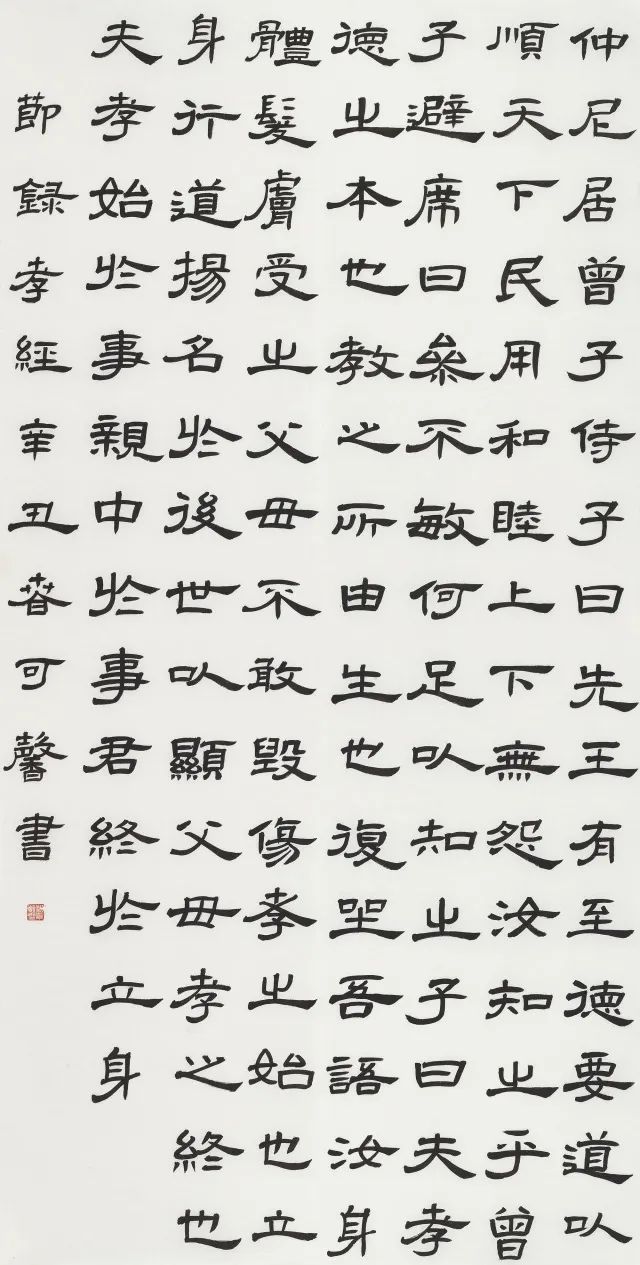 仲尼居曾子侍子曰先王有至德要道以
順天下民用和睦上下無怨汝知之乎曾
子避席曰參不敏何足以知之子曰夫孝
德之本也教之所由生也復坐吾語汝身
體髮膚受之父母不敢毀傷孝之始也立
身行道揚名於後世以顯父母孝之終也
夫孝始於事親中於事君終於立身
節録孝經辛丑春可馨書